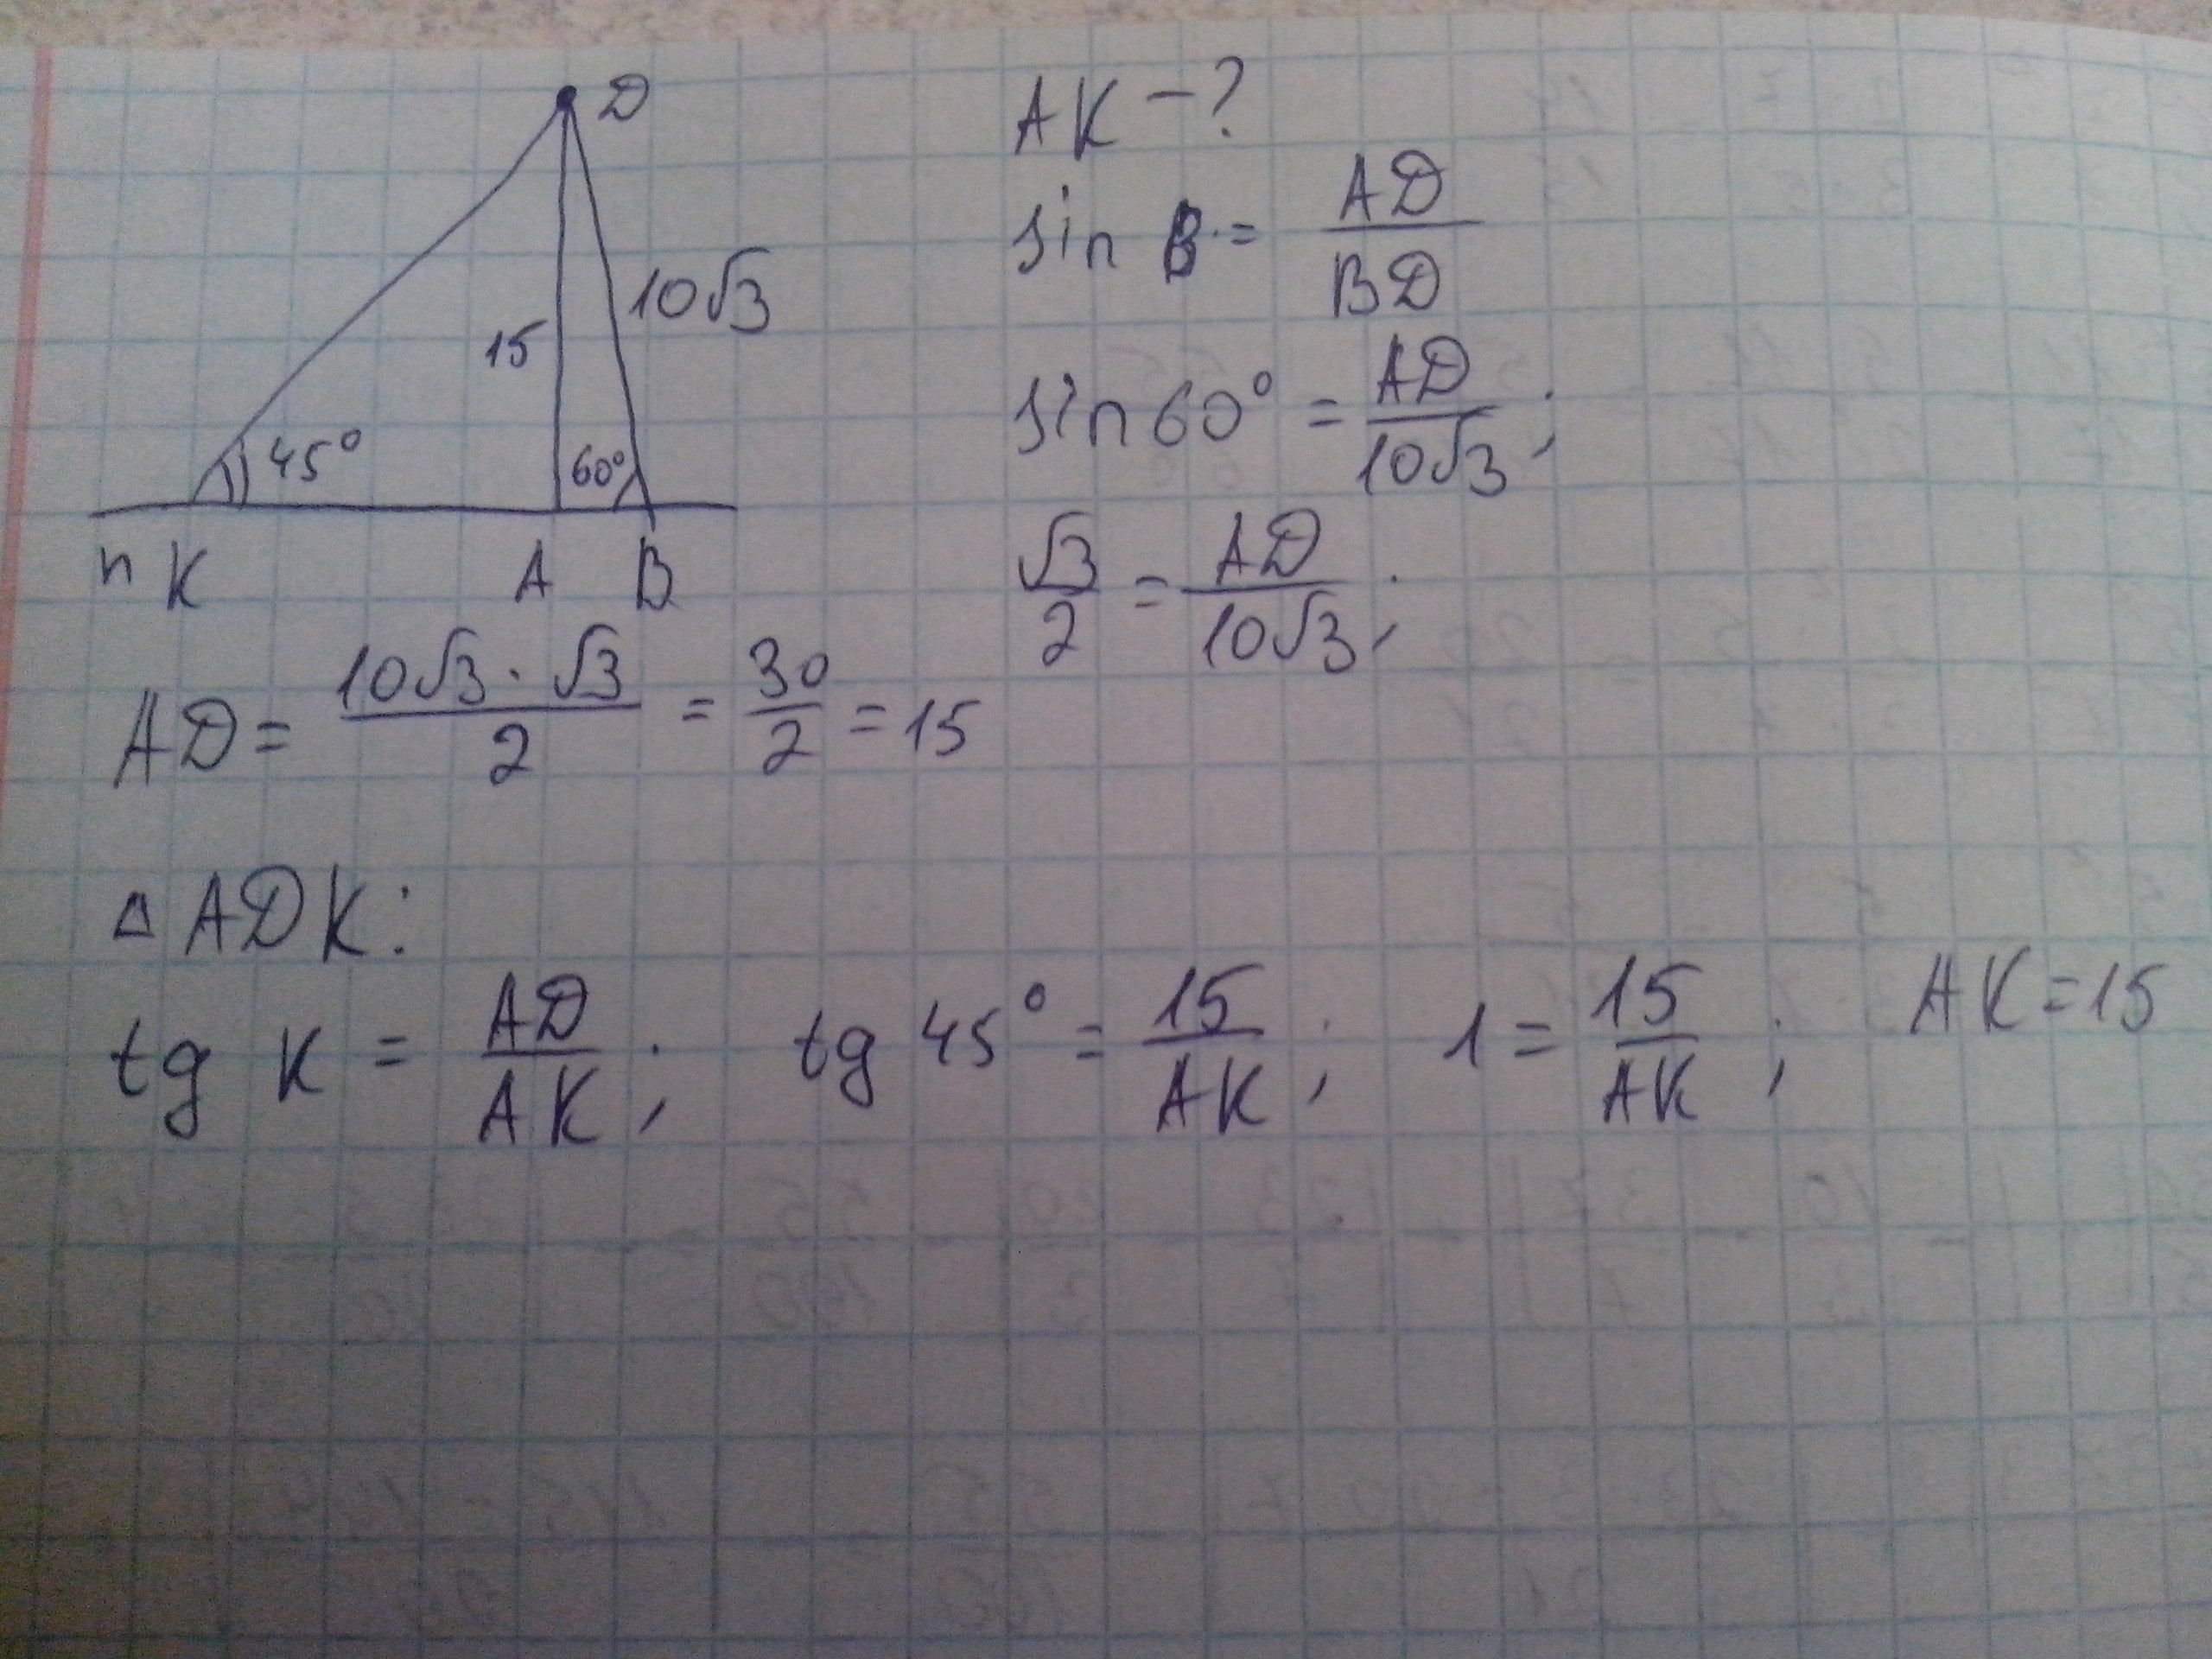 D
10√3
15
45°
60°
n K A B
AK – ?
sin B = AD/BD
sin 60° = AD/10√3;
√3/2 = AD/10√3;
AD = 10√3 · √3/2 = 30/2 = 15
△ ADK:
tg K = AD/AK; tg 45° = 15/AK; 1 = 15/AK; AK = 15